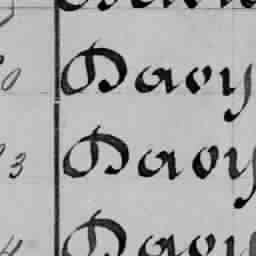 0 Davy
3 Davy
4 Davy